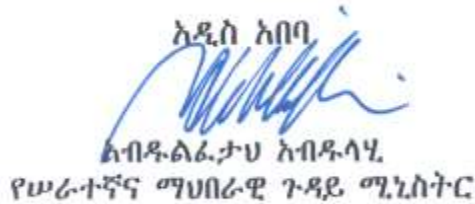 አዲስ አበባ
አብዱልፈታህ አብዱላሂ
የሠራተኛና ማህበራዊ ጉዳይ ሚኒስትር